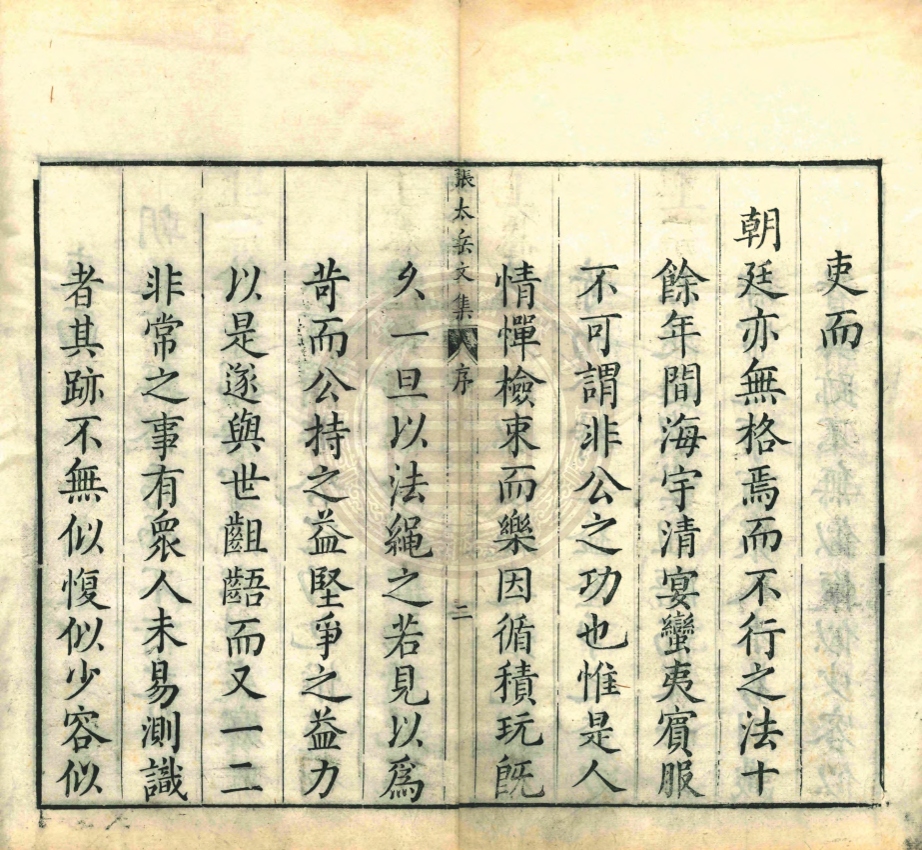 吏而
朝廷亦無格焉而不行之法十
餘年間海宇清宴蠻夷賓服
不可謂非公之功也惟是人
情憚檢束而樂因循積玩旣
張太岳文集 序 三
久一旦以法繩之若見以爲
苛而公持之益堅爭之益力
以是遂與世齟齬而又一二
非常之事有衆人未易測識
者其跡不無似愎似少容似